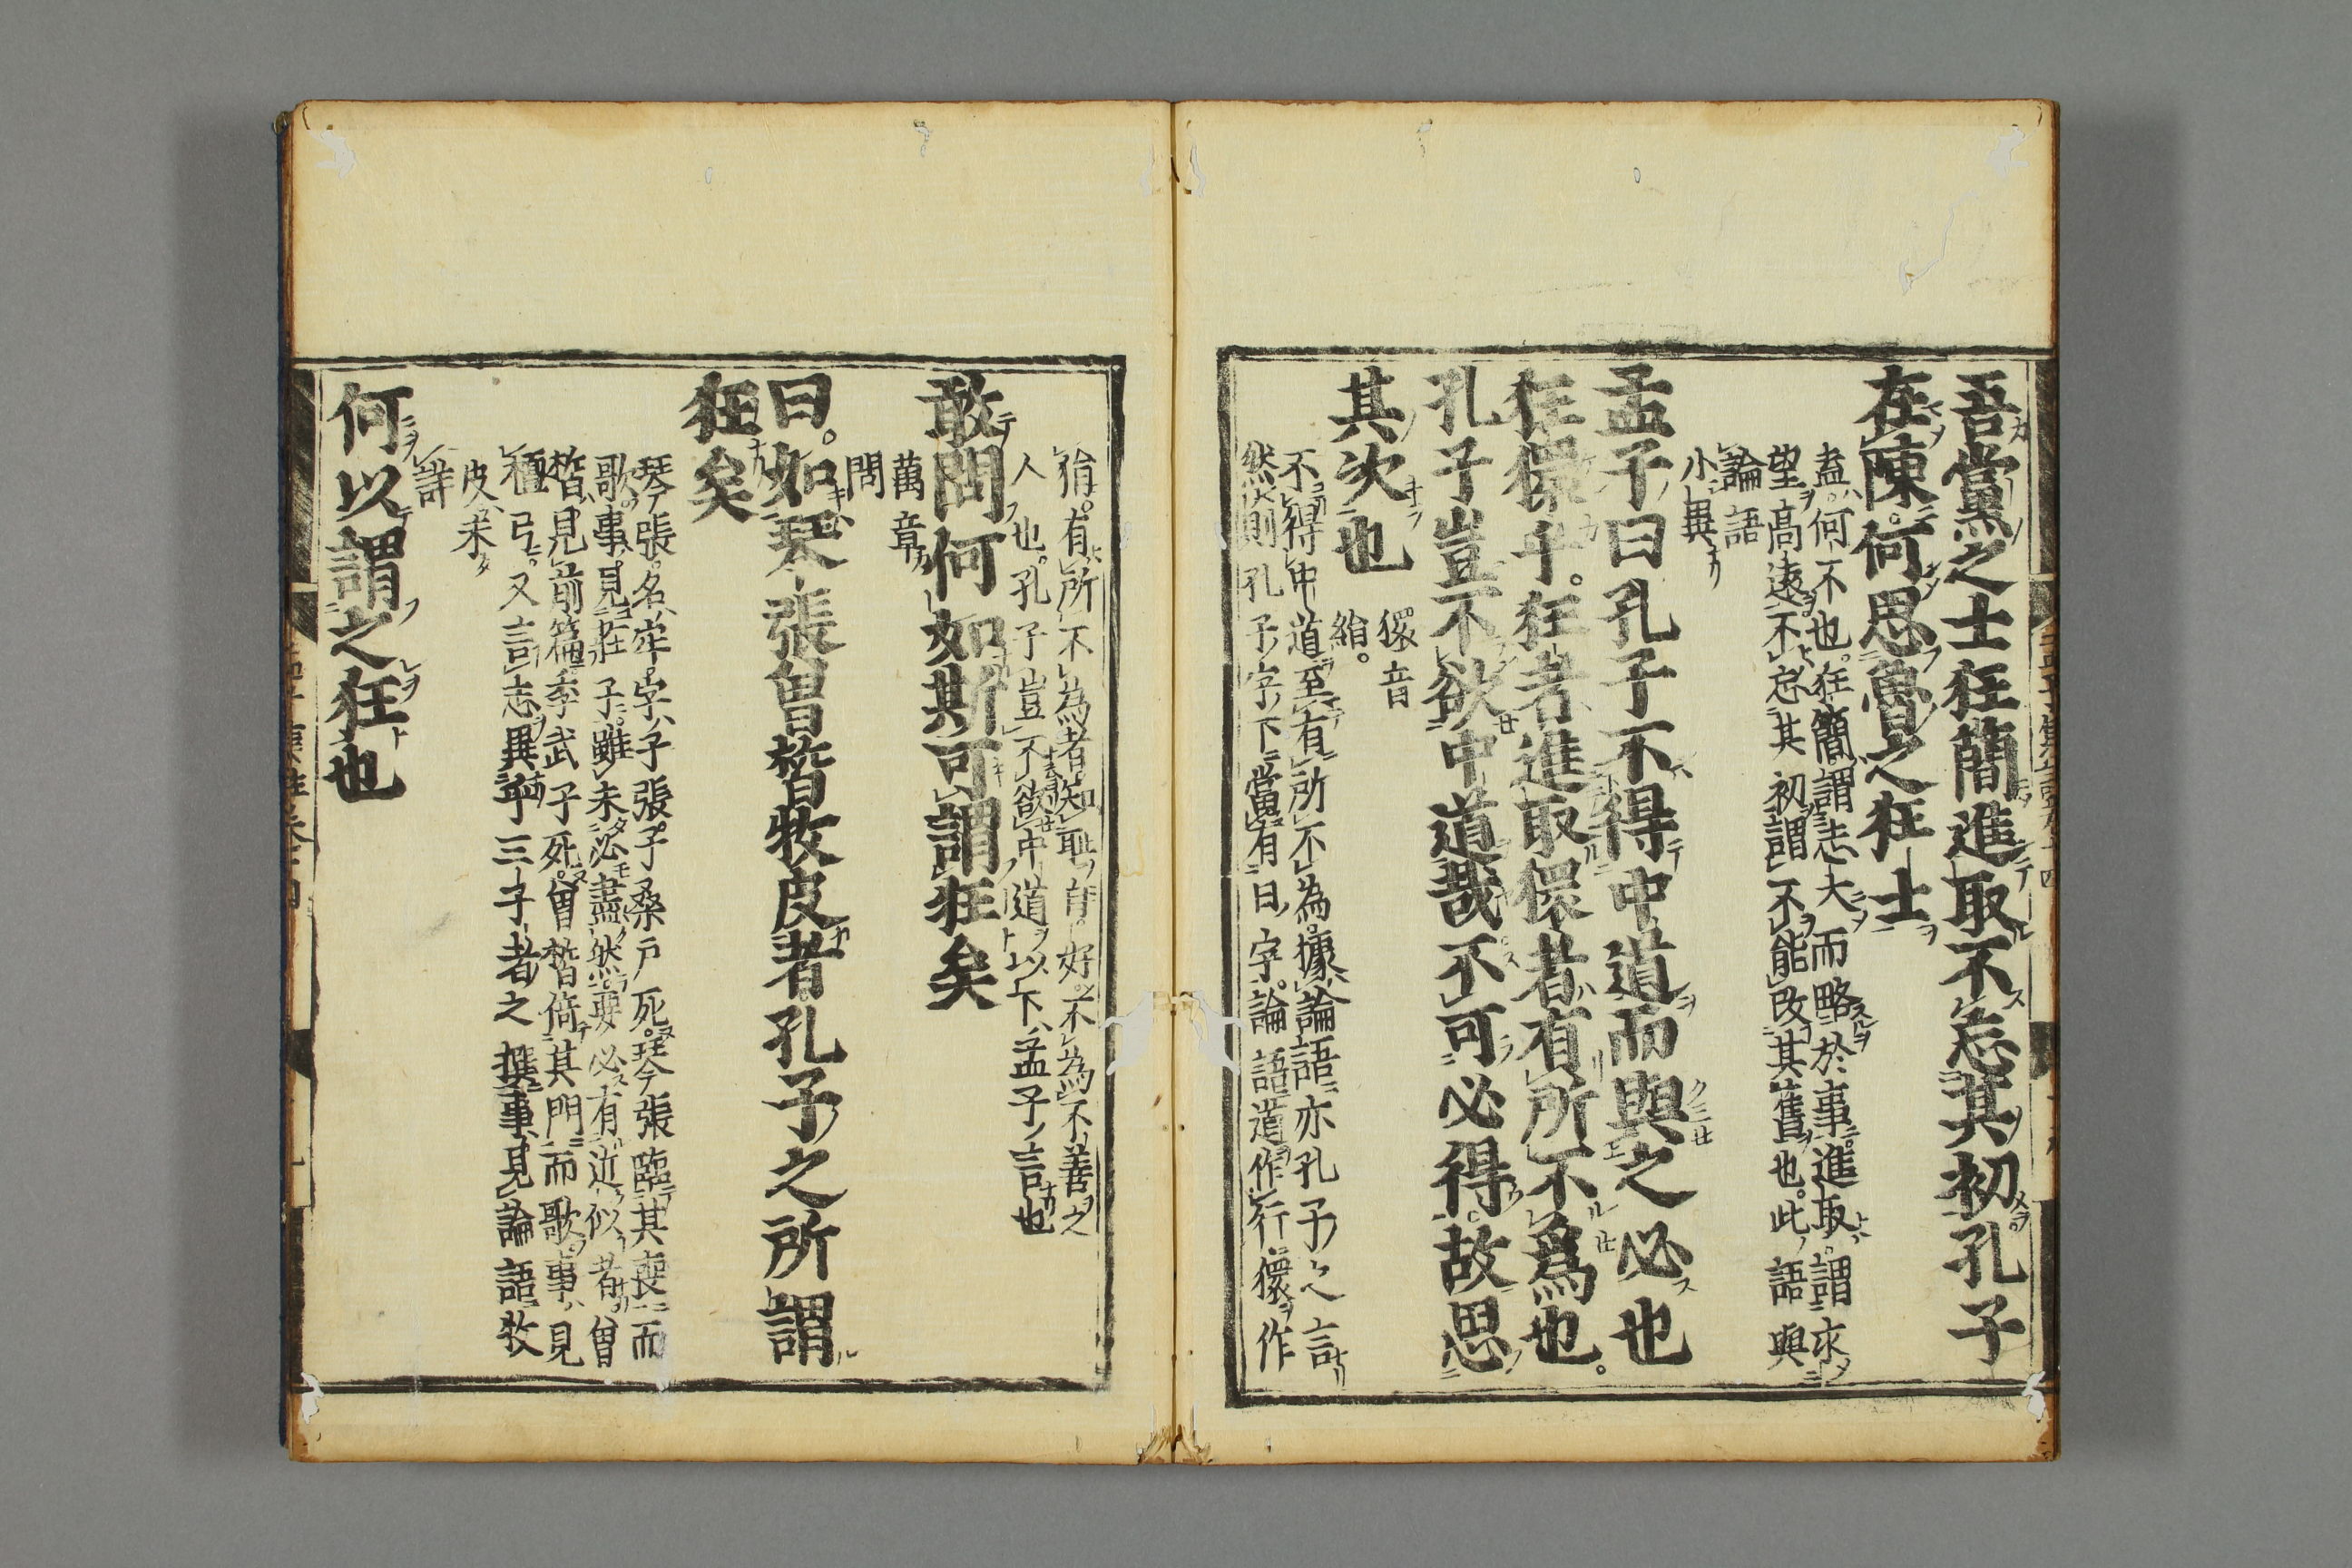 吾黨之士狂簡進取不忘其初孔子
在陳何思魯之狂士
盍何不也狂簡謂志大而略於事進取謂求
望高遠不忘其初謂不能改其舊也此語與
論語
小異
孟子曰孔子不得中道而與之必也
狂獧乎。狂者進取獧者有所不爲也。
孔子豈不欲中道哉不可必得故思
其次也
獧音
絹。
不得中道至有所不為據論語亦孔子之言
然則孔子字下當有曰字論語道作行獧作
狷有所不為者知恥自好不為不善之
人也孔子豈不欲中道以下孟子言也
敢問何如斯可謂狂矣
萬章
問
曰。如琴張曾晳牧皮者孔子之所謂
狂矣
琴張名牢字子張子桑戶死琴張臨其喪而
歌事見莊子雖未必盡然要必有近似者曾
晳見前篇季武子死曾晳倚其門而歌事見
檀弓又言志異乎三子者之撰事見論語牧
皮未
詳
何以謂之狂也